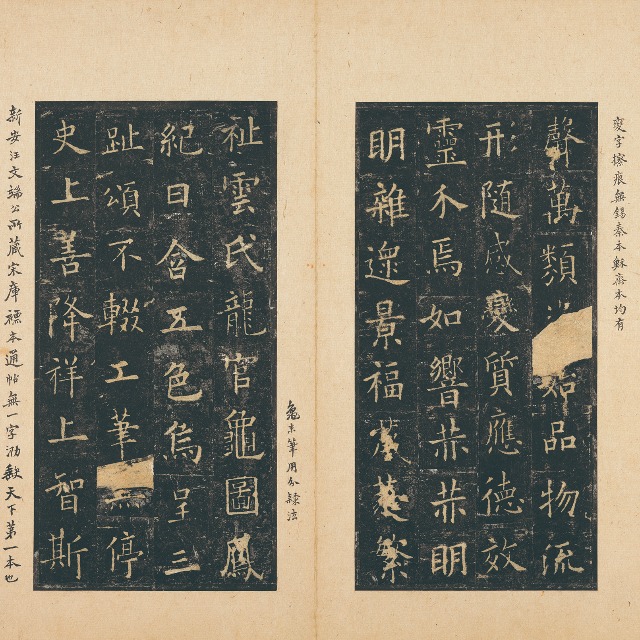 變字擦痕無錫秦本蘇齋本均有
聲萬類始品物流
形隨感變質應德效
靈介焉如響赫赫明
明雜遝景福葳蕤繁
龜末筆用分隸法
祉雲氏龍官龜圖鳳
紀日含五色烏呈三
趾頌不輟工筆停
史上善降祥上智斯
新安汪文端公所藏宋庫裱本通帖無一字泐天下第一本也